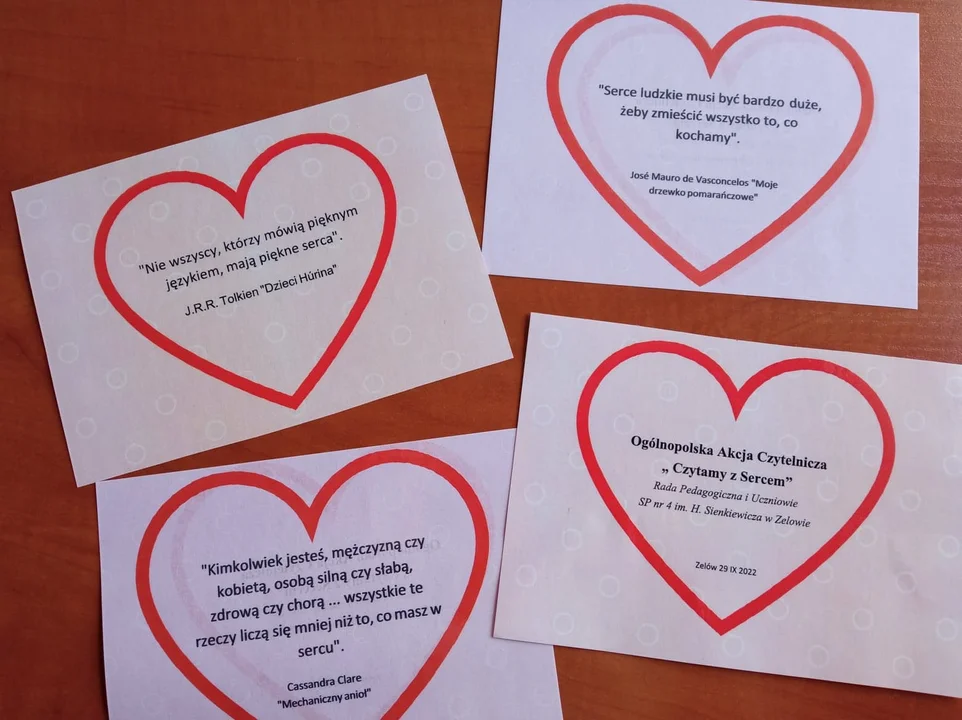 "Serce ludzkie musi być bardzo duże,
żeby zmieścić wszystko to, co
kochamy".
José Mauro de Vasconcelos "Moje
drzewko pomarańczowe"
"Nie wszyscy, którzy mówią pięknym
językiem, mają piękne serca".
J.R.R. Tolkien "Dzieci Húrina"
Ogólnopolska Akcja Czytelnicza
„ Czytamy z Sercem”
Rada Pedagogiczna i Uczniowie
SP nr 4 im. H. Sienkiewicza w Zelowie
Zelów 29 IX 2022
"Kimkolwiek jesteś, mężczyzną czy
kobietą, osobą silną czy słabą,
zdrową czy chorą ... wszystkie te
rzeczy liczą się mniej niż to, co masz w
sercu".
Cassandra Clare
"Mechaniczny anioł"